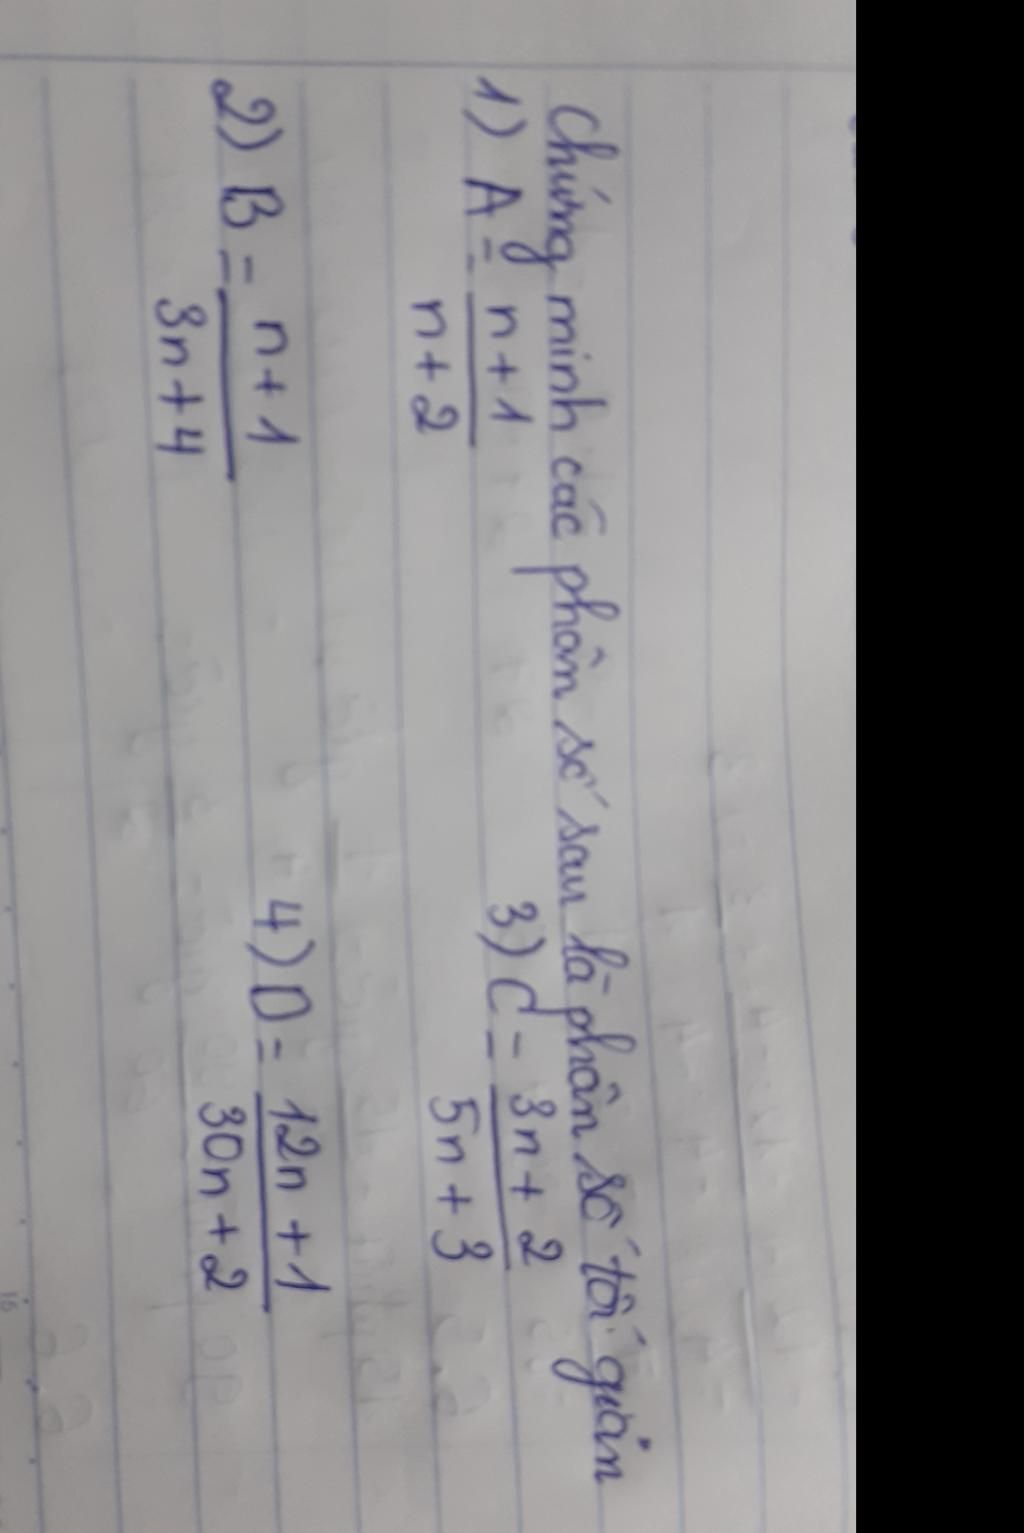 Chứng minh các phân số sau là phân số tối giản
1) A = n + 1 / n + 2    3) C = 3n + 2 / 5n + 3
2) B = n + 1 / 3n + 4    4) D = 12n + 1 / 30n + 2